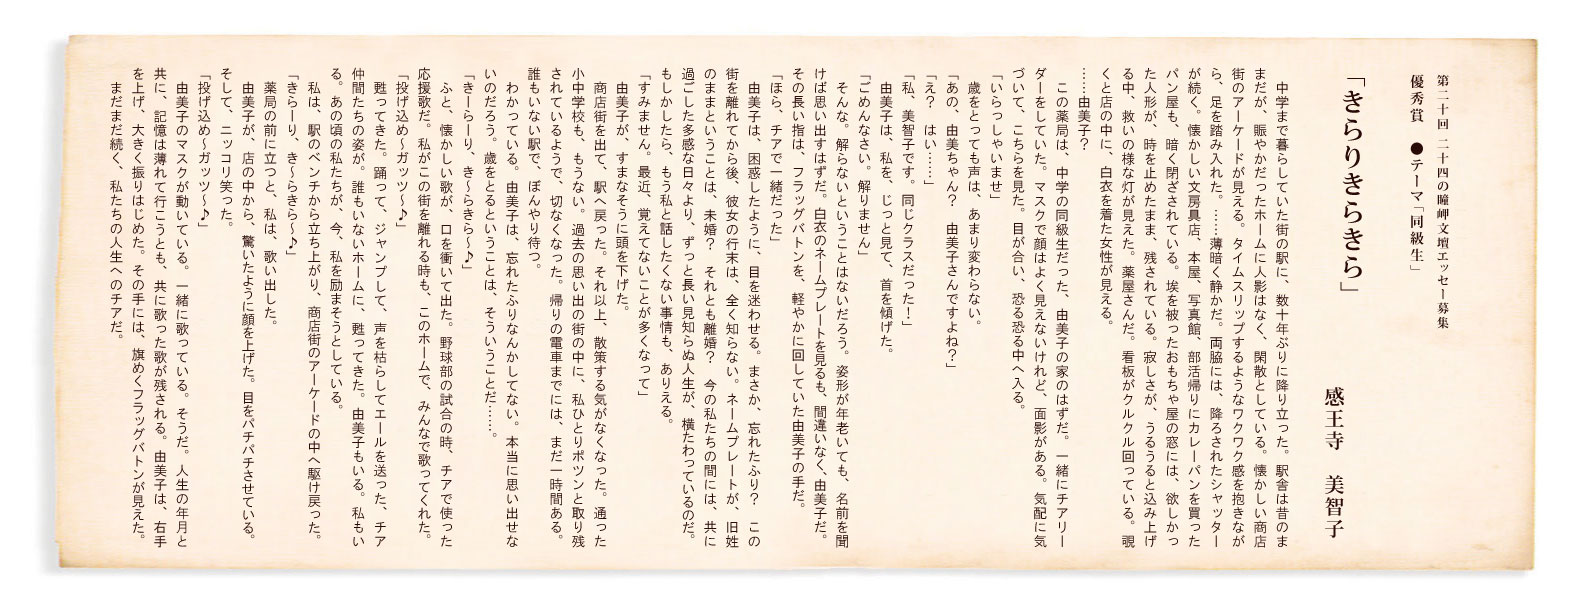 第二十回 二十四の瞳岬文壇エッセー募集
優秀賞 ●テーマ「同級生」
「きらりきらきら」
感王寺 美智子
中学まで暮らしていた街の駅に、数十年ぶりに降り立った。駅舎は昔のま
まだが、賑やかだったホームに人影はなく、閑散としている。懐かしい商店
街のアーケードが見える。タイムスリップするようなワクワク感を抱きなが
ら、足を踏み入れた。……薄暗く静かだ。両脇には、降ろされたシャッター
が続く。懐かしい文房具店、本屋、写真館、部活帰りにカレーパンを買った
パン屋も、暗く閉ざされている。埃を被ったおもちゃ屋の窓には、欲しかっ
た人形が、時を止めたまま、残されている。寂しさが、うるうると込み上げ
る中、救いの様な灯が見えた。薬屋さんだ。看板がクルクル回っている。覗
くと店の中に、白衣を着た女性が見える。
……由美子?
この薬局は、中学の同級生だった、由美子の家のはずだ。一緒にチアリー
ダーをしていた。マスクで顔はよく見えないけれど、面影がある。気配に気
づいて、こちらを見た。目が合い、恐る恐る中へ入る。
「いらっしゃいませ」
歳をとっても声は、あまり変わらない。
「あの、由美ちゃん? 由美子さんですよね?」
「え? はい……」
「私、美智子です。同じクラスだった!」
由美子は、私を、じっと見て、首を傾げた。
「ごめんなさい。解りません」
そんな。解らないということはないだろう。姿形が年老いても、名前を聞
けば思い出すはずだ。白衣のネームプレートを見るも、間違いなく、由美子だ。
その長い指は、フラッグバトンを、軽やかに回していた由美子の手だ。
「ほら、チアで一緒だった」
由美子は、困惑したように、目を迷わせる。まさか、忘れたふり? この
街を離れてから後、彼女の行末は、全く知らない。ネームプレートが、旧姓
のままということは、未婚? それとも離婚? 今の私たちの間には、共に
過ごした多感な日々より、ずっと長い見知らぬ人生が、横たわっているのだ。
もしかしたら、もう私と話したくない事情も、ありえる。
「すみません。最近、覚えてないことが多くなって」
由美子が、すまなそうに頭を下げた。
商店街を出て、駅へ戻った。それ以上、散策する気がなくなった。通った
小中学校も、もうない。過去の思い出の街の中に、私ひとりポツンと取り残
されているようで、切なくなった。帰りの電車までには、まだ一時間ある。
誰もいない駅で、ぼんやり待つ。
わかっている。由美子は、忘れたふりなんかしてない。本当に思い出せな
いのだろう。歳をとるということは、そういうことだ……。
「きーらーり、き〜らきら〜♪」
ふと、懐かしい歌が、口を衝いて出た。野球部の試合の時、チアで使った
応援歌だ。私がこの街を離れる時も、このホームで、みんなで歌ってくれた。
「投げ込め〜ガッツ〜♪」
甦ってきた。踊って、ジャンプして、声を枯らしてエールを送った、チア
仲間たちの姿が。誰もいないホームに、甦ってきた。由美子もいる。私もい
る。あの頃の私たちが、今、私を励まそうとしている。
私は、駅のベンチから立ち上がり、商店街のアーケードの中へ駆け戻った。
「きらーり、き〜らきら〜♪」
薬局の前に立つと、私は、歌い出した。
由美子が、店の中から、驚いたように顔を上げた。目をパチパチさせている。
そして、ニッコリ笑った。
「投げ込め〜ガッツ〜♪」
由美子のマスクが動いている。一緒に歌っている。そうだ。人生の年月と
共に、記憶は薄れて行こうとも、共に歌った歌が残される。由美子は、右手
を上げ、大きく振りはじめた。その手には、旗めくフラッグバトンが見えた。
まだまだ続く、私たちの人生へのチアだ。